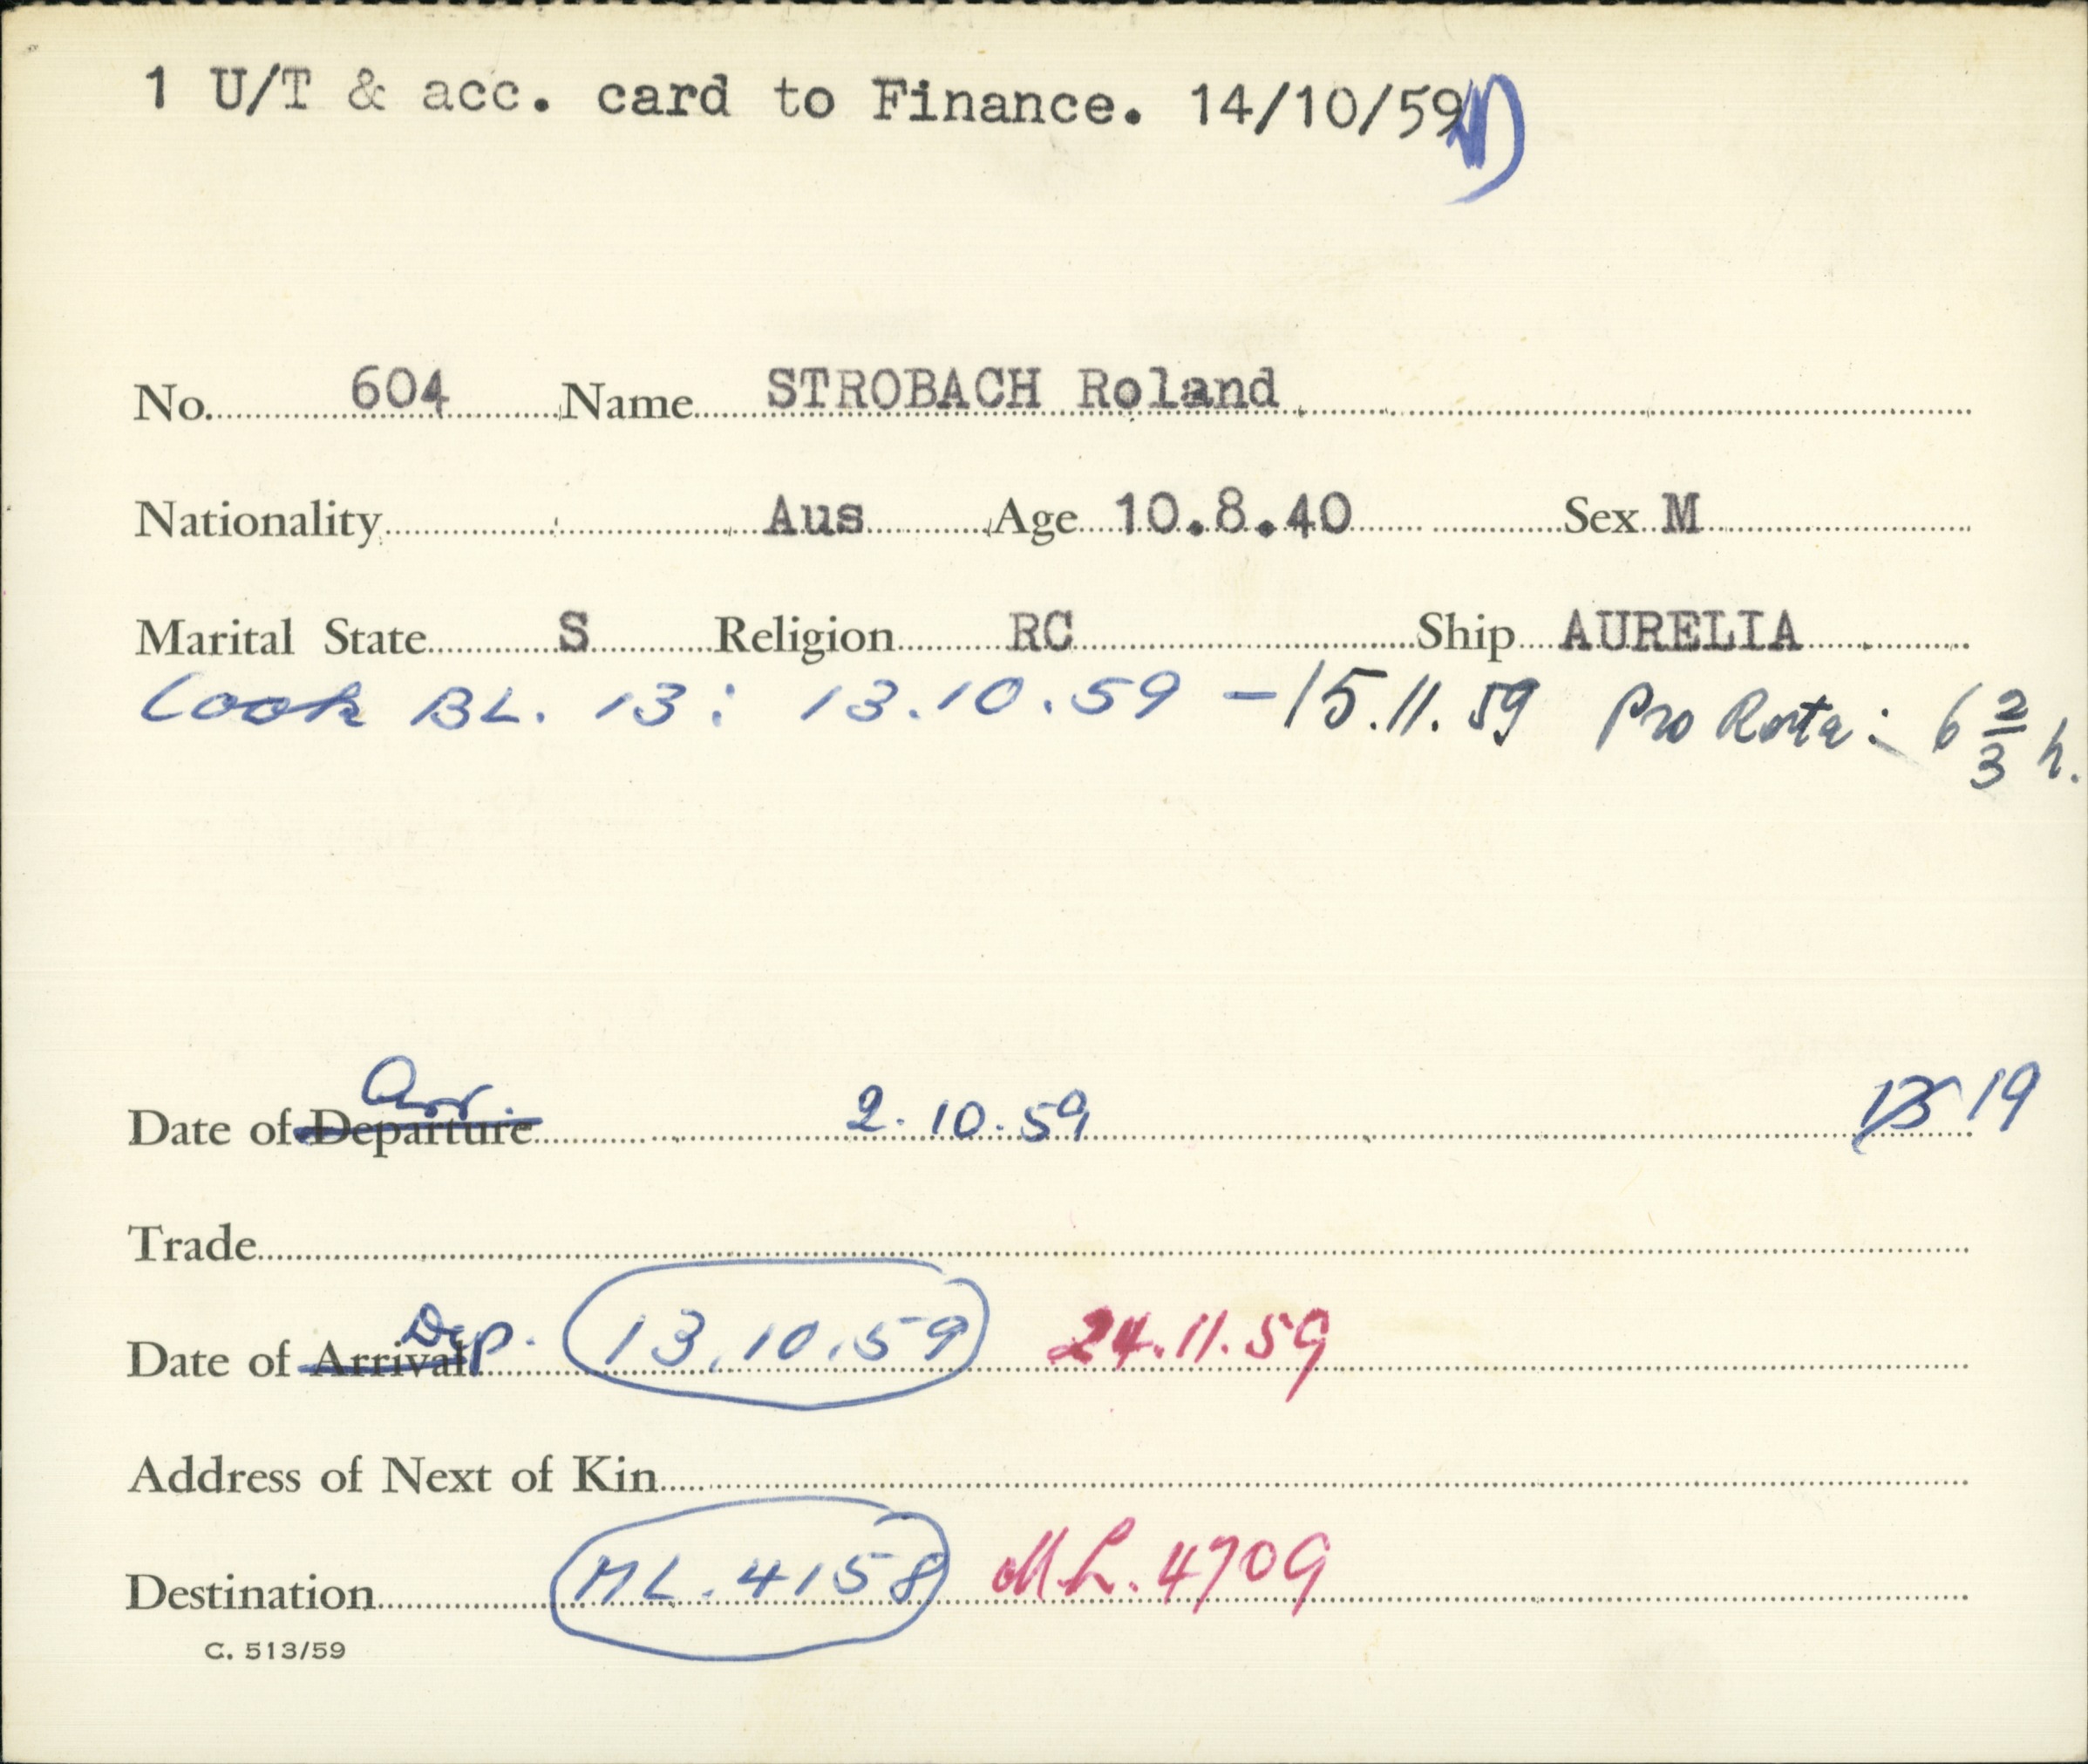 1 U/T & acc. card to Finance. 14/10/59
No. 604 Name STROBACH Roland
Nationality Aus Age 10.8.40 Sex M
Marital State S Religion RC Ship AURELIA
Cook BL. 13: 13.10.59 - 15.11.59 Pro Rata: 6 2/3 h.
Arr.
Date of Departure 2.10.59 19
Trade
Dep.
Date of Arrival 13.10.59 24.11.59
Address of Next of Kin
Destination ML. 4158 ML. 4709
C. 513/59